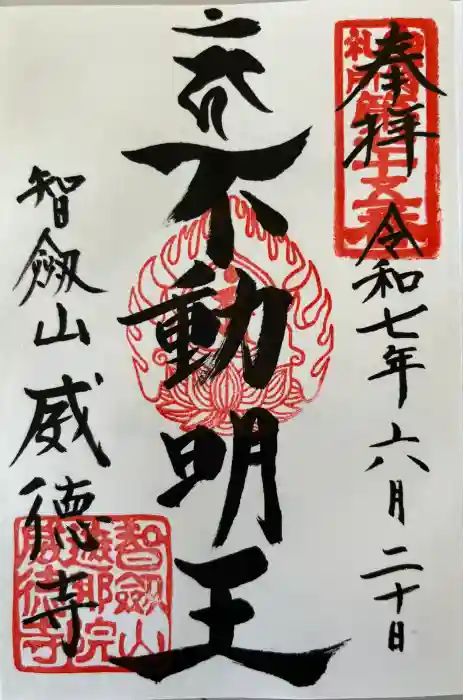 奉拝
令和七年六月二十日
不動明王
智劔山
威徳寺
智劔山
遮那院
威徳寺